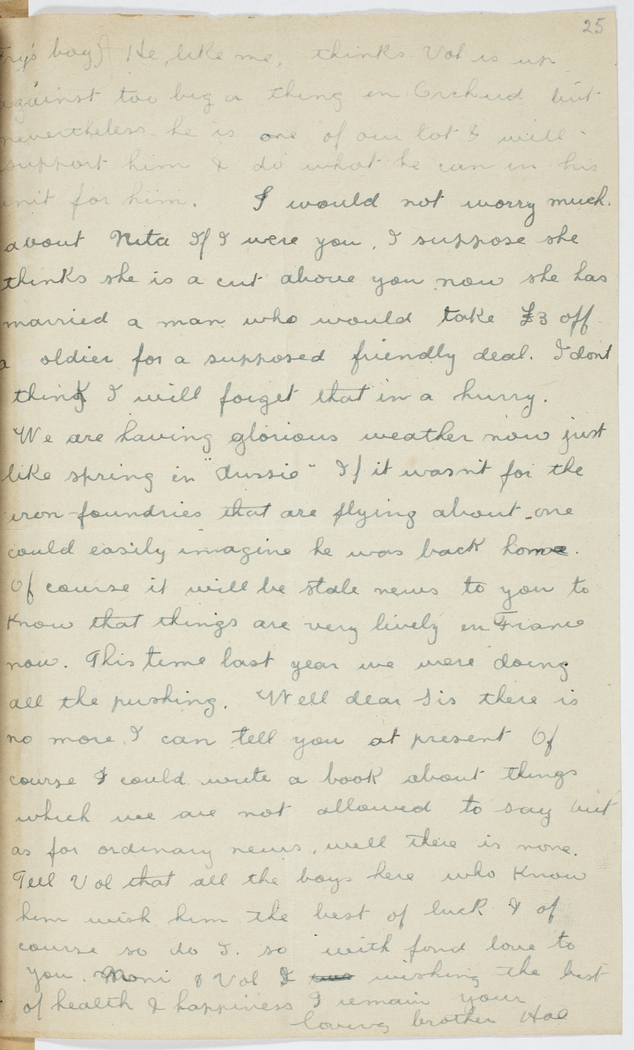 25
Fry's boy) He, like me, thinks Vol is up
against too big a thing in Orchard but
nevertheless he is one of our lot & will
support him & do what he can in his
unit for him. I would not worry much.
about Rita If I were you, I suppose she
thinks she is a cut above you now she has
married a man who would take £3 off
a oldier for a supposed friendly deal. I dont
think I will forget that in a hurry.
We are having glorious weather now just
like spring in "Aussie" If it wasn't for the
iron-foundries that are flying about one
could easily imagine he was back home.
Of course it will be stale news to you to
know that things are very lively in France
now. This time last year we were doing
all the pushing. Well dear Sis there is
no more I can tell you at present Of
course I could write a book about things
which we are not allowed to say but
as for ordinary news, well there is none.
Tell Vol that all the boys here who know
him wish him the best of luck & of
course so do I. so with fond love to
you. Moni & Vol & wishing the best
of health & happiness I remain your
loving brother Hal